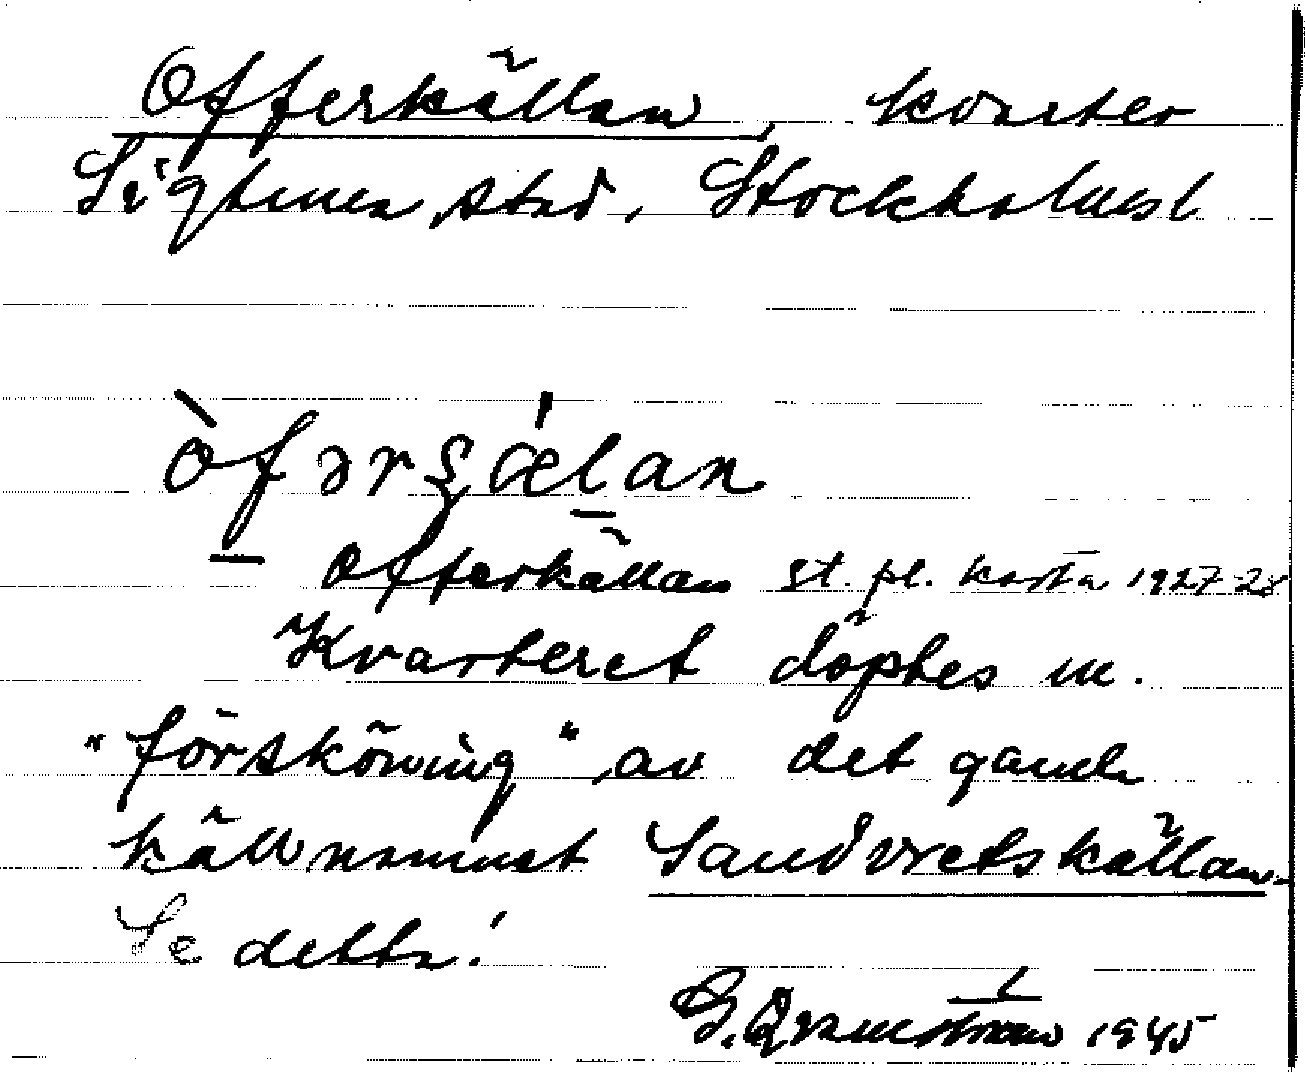 Offerkällan, kvarter
Sigtuna stad, Stockholms l
òfərçǽlan
Offerkällan st. pl. karta 1927-28
Kvarteret döptes m.
"försköning" av det gamla
källnamnet Sandvretskällan.
Se detta!
G. 1945